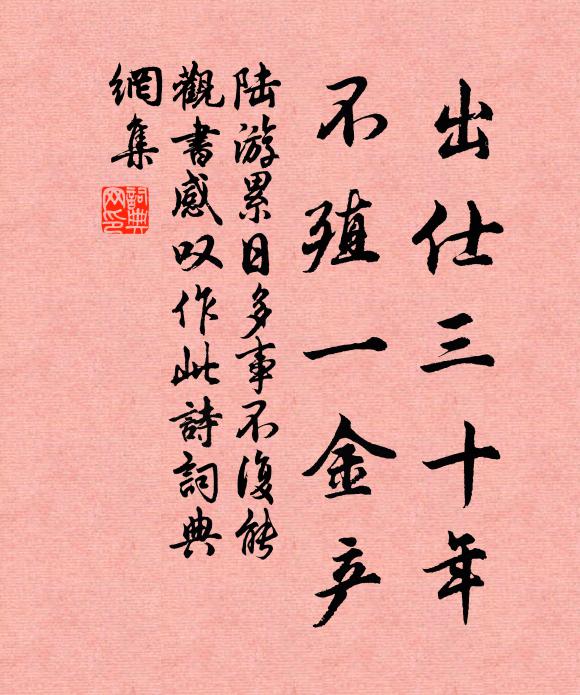 出仕三十年
不殖一金产
陆游累日多事不復能
觀書感叹作此詩詞典
網集
詞典
网印